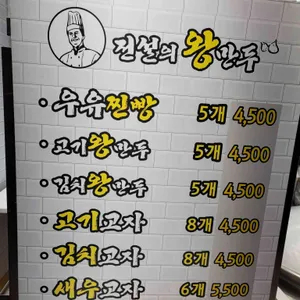 전설의 왕만두
• 우유찐빵 5개 4,500
• 고기왕만두 5개 4,500
• 김치왕만두 5개 4,500
• 고기교자 8개 4,500
• 김치교자 8개 4,500
• 새우교자 6개 5,500